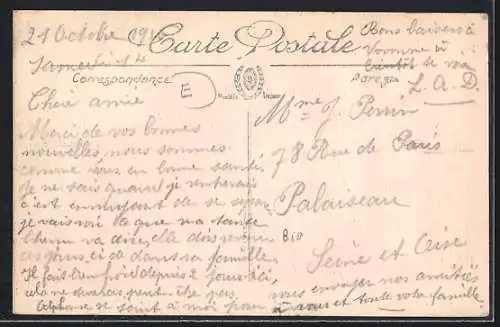 21 Octobre 19
Carte Postale
Correspondance
E
Modèle
Bons baisers à
Yvonne à
bientôt de vos
L. A. D.
Chère amie
Merci de vos bonnes
nouvelles, nous sommes
comme vous en bonne santé.
Je ne sais quand je rentrerais
c'est ennuyant de se
je vais voir ce que ma tante
va dire, elle dois
ces jours ici de dans sa famille
Il fait bien froid depuis 2 jours ici,
cela ne durerais peut être pas
Alphonse se joint à moi pour
vous envoyer nos amitiés
à vous et toute votre famille
Mme J. Perrin
78 Rue de Paris
Palaiseau
Seine et Oise